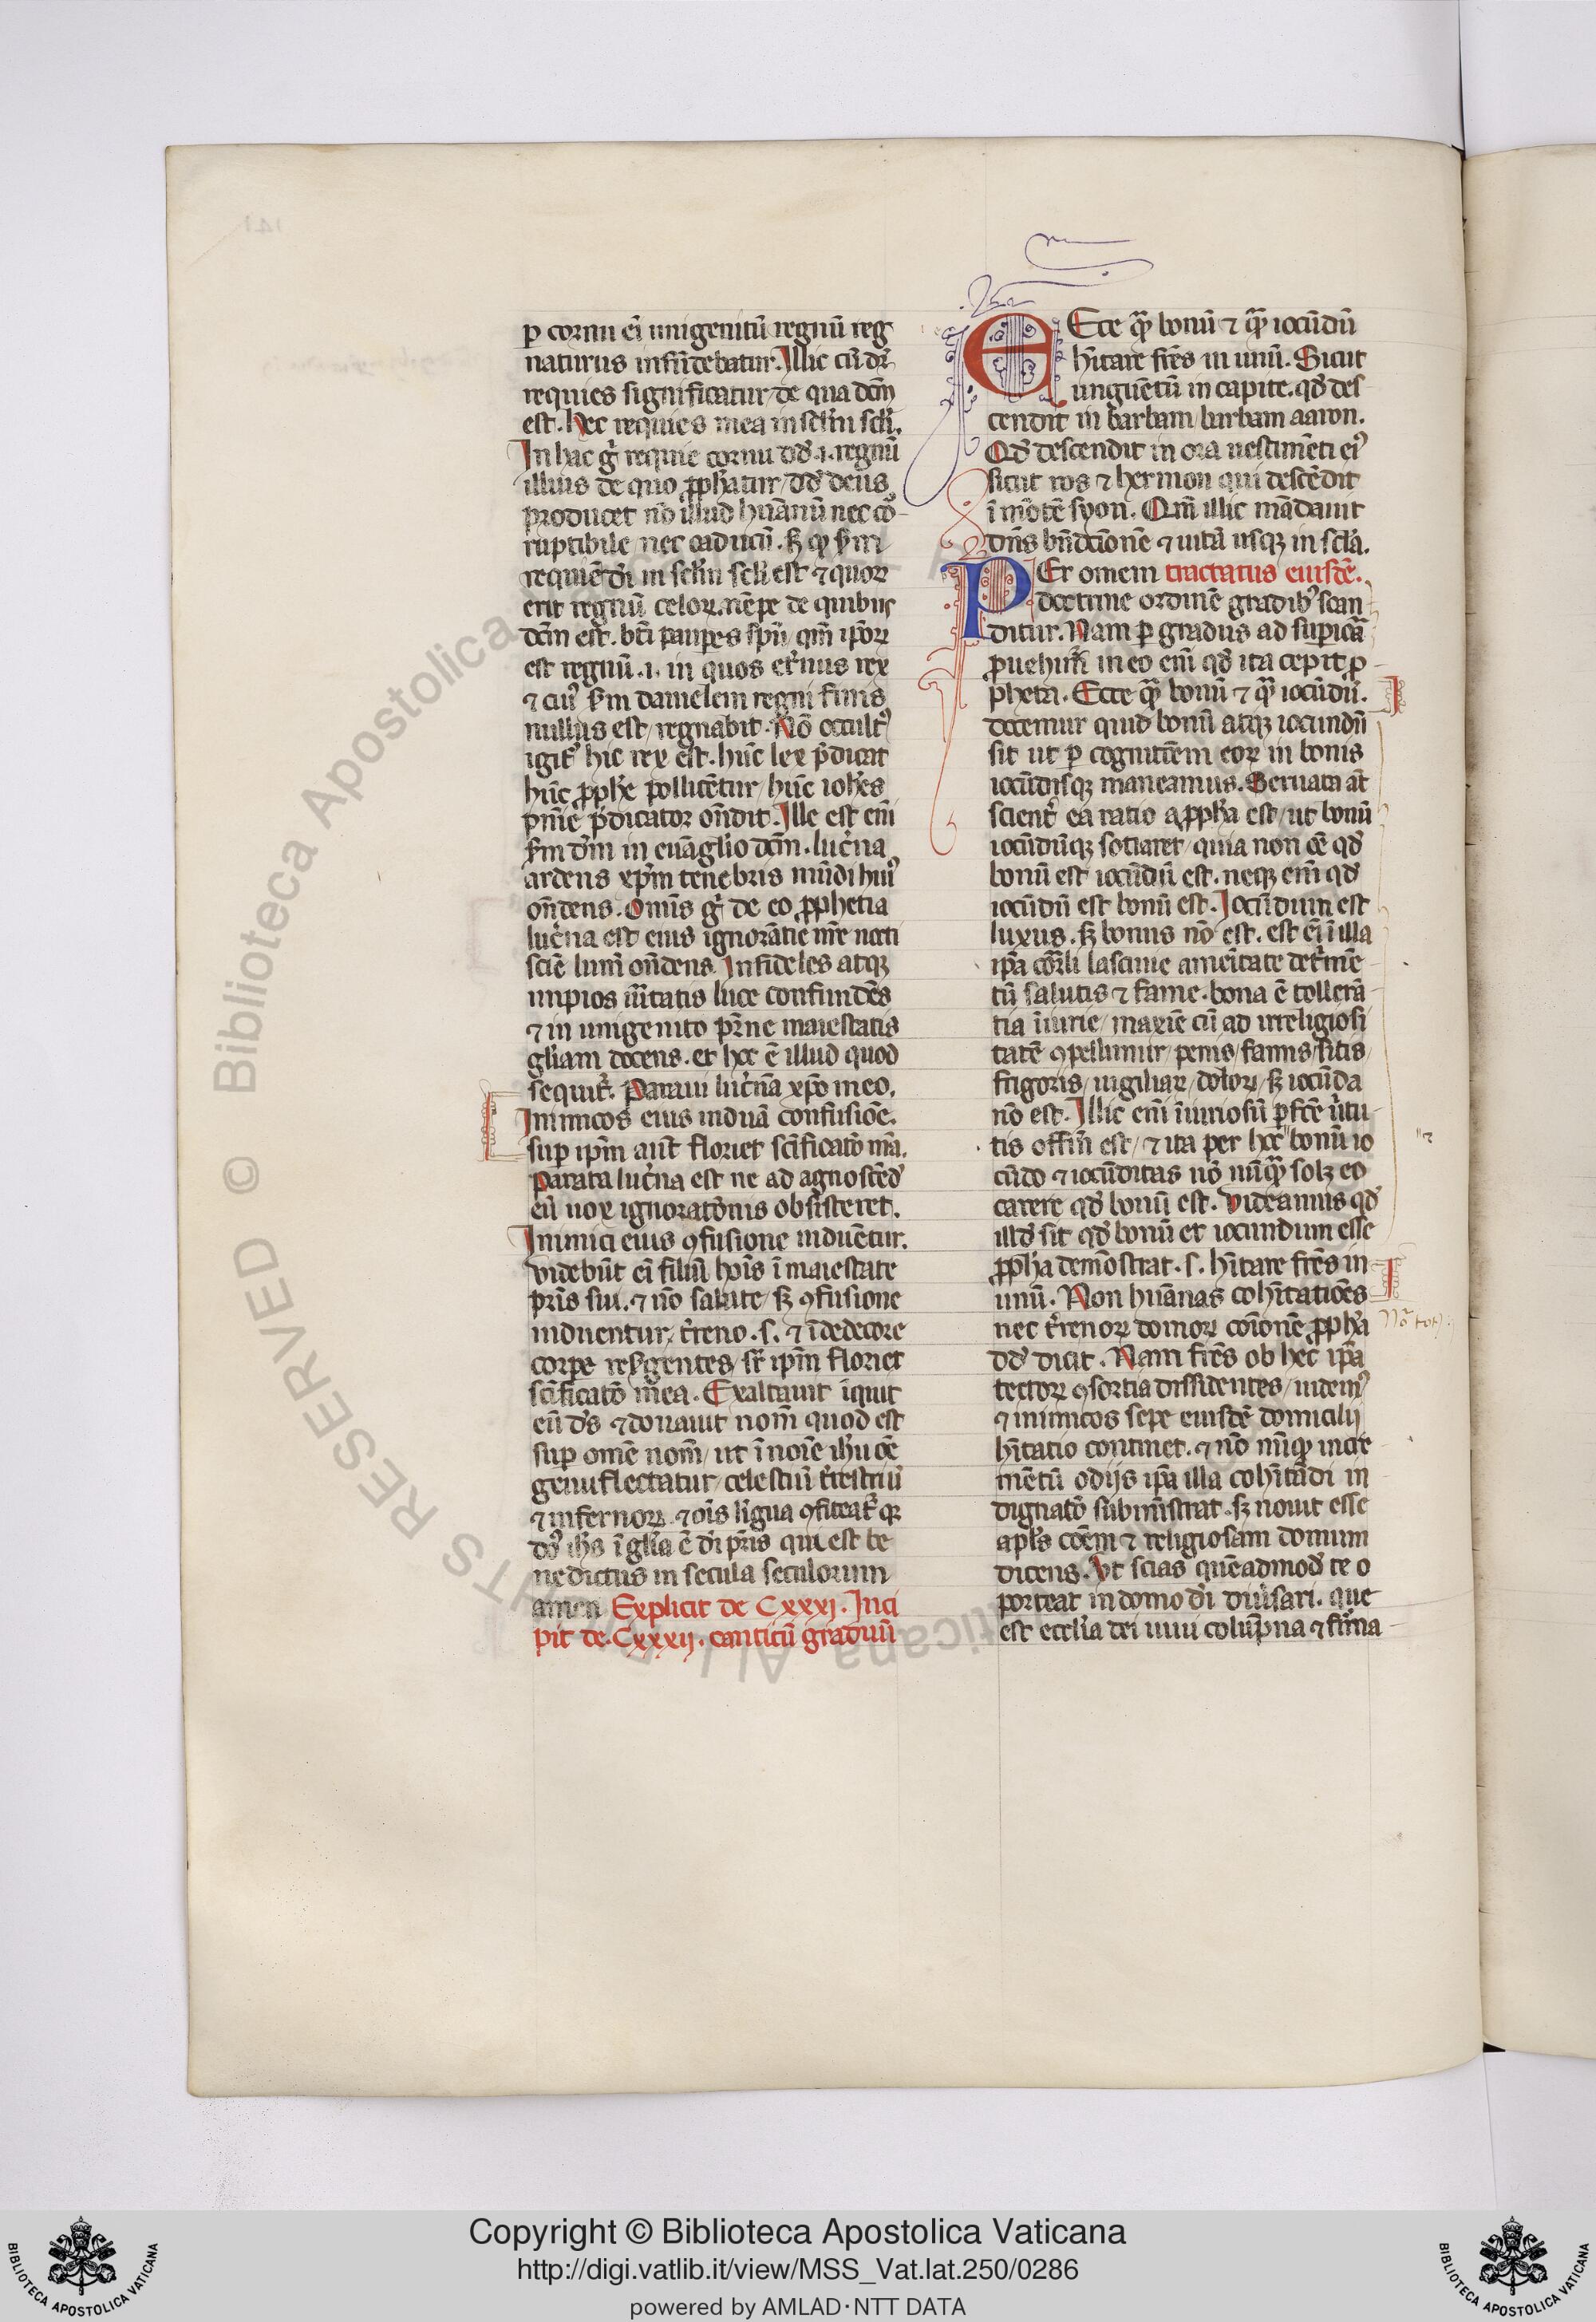 ꝑ cornu ei unigenitũ regnũ reg
naturus infũdebatur. Illic cũ dñi
requies significatur / de qua dcm̃
est. Hec requies mea in sclm̃ scl̃i.
In hac gͦ requie cornu dd̃ .i. regnũ
illius de quo ꝓph̃atur / dd̃ deus
producet nõ illud huãnũ nec co
ruptibile nec caducũ. sꝫ
requiẽ dñi in sclm̃ scl̃i est ⁊ quoꝝ
erit regnũ celoꝝ. nẽpe de quibus
dcm̃ est. bt̃i pauꝑes spũ qm̃ ip̃oꝝ
est regnũ .i. in quos et̃nus rex
⁊ cuiꝰ ẜm danielem regni finis
nullus est / regnabit. Nõ occultꝰ
igit̃ hic rex est. hũc lex p̃dicat
hũc ꝓph̃e pollicẽtur / hũc ioh̃es
p̃dicator on̄dit. Ille est em̃
ẜm dñm in euãglio dcm̃. luc̃na
ardens xp̃m tenebris mũdi huiꝰ
on̄dens. Om̃is gͦ de eo ꝓphetia
luc̃na est eius ignorãtie nr̃e nocti
sciẽ lum̃ on̄dens. Infideles atqꝫ
impios ũitatis luce confundẽs
⁊ in unigenito pr̃ne maiestatis
gl̃iam docens. et hoc ẽ illud quod
sequit̃. Paraui luc̃nã xp̃o meo.
Inimicos eius induã confusiõe.
suꝑ ip̃m aut̃ floriet sc̃ificatõ m̃a.
Parata luc̃na est ne ad agnoscẽd̃
eũ nox ignoratõnis obsisteret.
Inimici eius ꝯfusione induẽtur.
Videbũt ei filiũ hoĩs ĩ maiestate
pr̃is sui. ⁊ nõ salute / sꝫ ꝯfusione
induentur / t̃reno .s. ⁊ ĩ dedecore
corpe resurgentes / sꝫ ip̃m floriet
sc̃ificatõ mea. Exaltauit ĩquit
eũ ds̃ ⁊ donauit nom̃ quod est
suꝑ om̃e nom̃ / ut ĩ noĩe ih̃u oẽ
genu flectatur / celestiũ t̃restriũ
⁊ infernoꝝ. ⁊ oĩs lĩgua ꝯfiteat̃ qꝛ
dñs ih̃s ĩ gl̃ia ẽ di pr̃is qui est be
nedictus in secula seculorum
amen Explicit de Cxxxj. Inci
pit de. Cxxxij. canticũ graduũ
Ecce qꝫ̃ bonũ ⁊ qꝫ̃ iocũdũ
hĩtare fr̃es in unũ. Sicut
unguẽtũ in capite. qd̃ des
cendit in barbam barbam aaron.
Qd̃ descendit in ora uestimẽti eiꝰ
sicut ros ⁊ hermon qui descẽdit
ĩ mõtẽ syon. Qm̃ illic mãdauit
dñs bñdctionẽ ⁊ uitã usqꝫ in scl̃a.
Per omem tractatus eiusdẽ.
doctrine ordinẽ gradibꝰ scan
ditur. Nam ꝑ gradus ad supicã
ꝓuehimur. in eo em̃ qd̃ ita cepit ꝓ
pheta. Ecce qꝫ̃ bonũ ⁊ qꝫ̃ iocũdũ.
docemur quid bonũ atqꝫ iocundũ
sit ut ꝑ cognitiõem eoꝝ in bonis
iocũdisqꝫ maneamus. Seruata aũt
scient̃ ea ratio a ꝓph̃a est / ut bonũ
iocũdũqꝫ sociaret / quia non oẽ qd̃
bonũ est iocũdũ est. neqꝫ em̃ qd̃
iocũdũ est bonũ est. Iocũdum est
luxus. sꝫ bonus nõ est. est ei ĩ illa
ip̃a corꝑali lasciuie ameĩtate det̃mẽ
tũ salutis ⁊ fame. bona ẽ tollerã
tia ĩiurie / maxiẽ cũ ad irreligiosi
tatẽ ꝯpellimur / penis / famis / sitis /
frigoris / uigiliaꝝ / doloꝝ / sꝫ iocũda
nõ est. Illic em̃ ĩiuriosũ ꝑfcẽ uirtu
tis offm̃ est / ⁊ ita per hoc bonũ io
cũdo ⁊ iocũditas nõ nũqꝫ̃ solꝫ eo
carere qd̃ bonũ est. Videamus qd̃
illd̃ sit qd̃ bonũ et iocundum esse
ꝓph̃a demõstrat .s. hĩtare fr̃es in
unũ. Non huãnas cohĩtatiões
nec t̃renoꝝ domoꝝ coĩonẽ ꝓph̃a
dd̃ dicit. Nam fr̃es ob hec ip̃a
tectoꝝ ꝯsortia dissidentes / uidemꝰ
⁊ inimicos sepe eiusdẽ domicilij
hĩtatio continet. ⁊ nõ nũqꝫ incre
mẽtũ odijs ip̃a illa cohĩtãdi in
dignatõ subministrat. sꝫ nouit esse
apl̃s coẽm ⁊ religiosam domum
dicens. Vt scias quẽadmod̃ te o
porteat in domo di ꝯuersari. que
est eccl̃ia dei uiui colũpna ⁊ firma
Copyright © Biblioteca Apostolica Vaticana
http://digi.vatlib.it/view/MSS_Vat.lat.250/0286
powered by AMLAD·NTT DATA
BIBLIOTECA APOSTOLICA VATICANA
BIBLIOTECA APOSTOLICA VATICANA